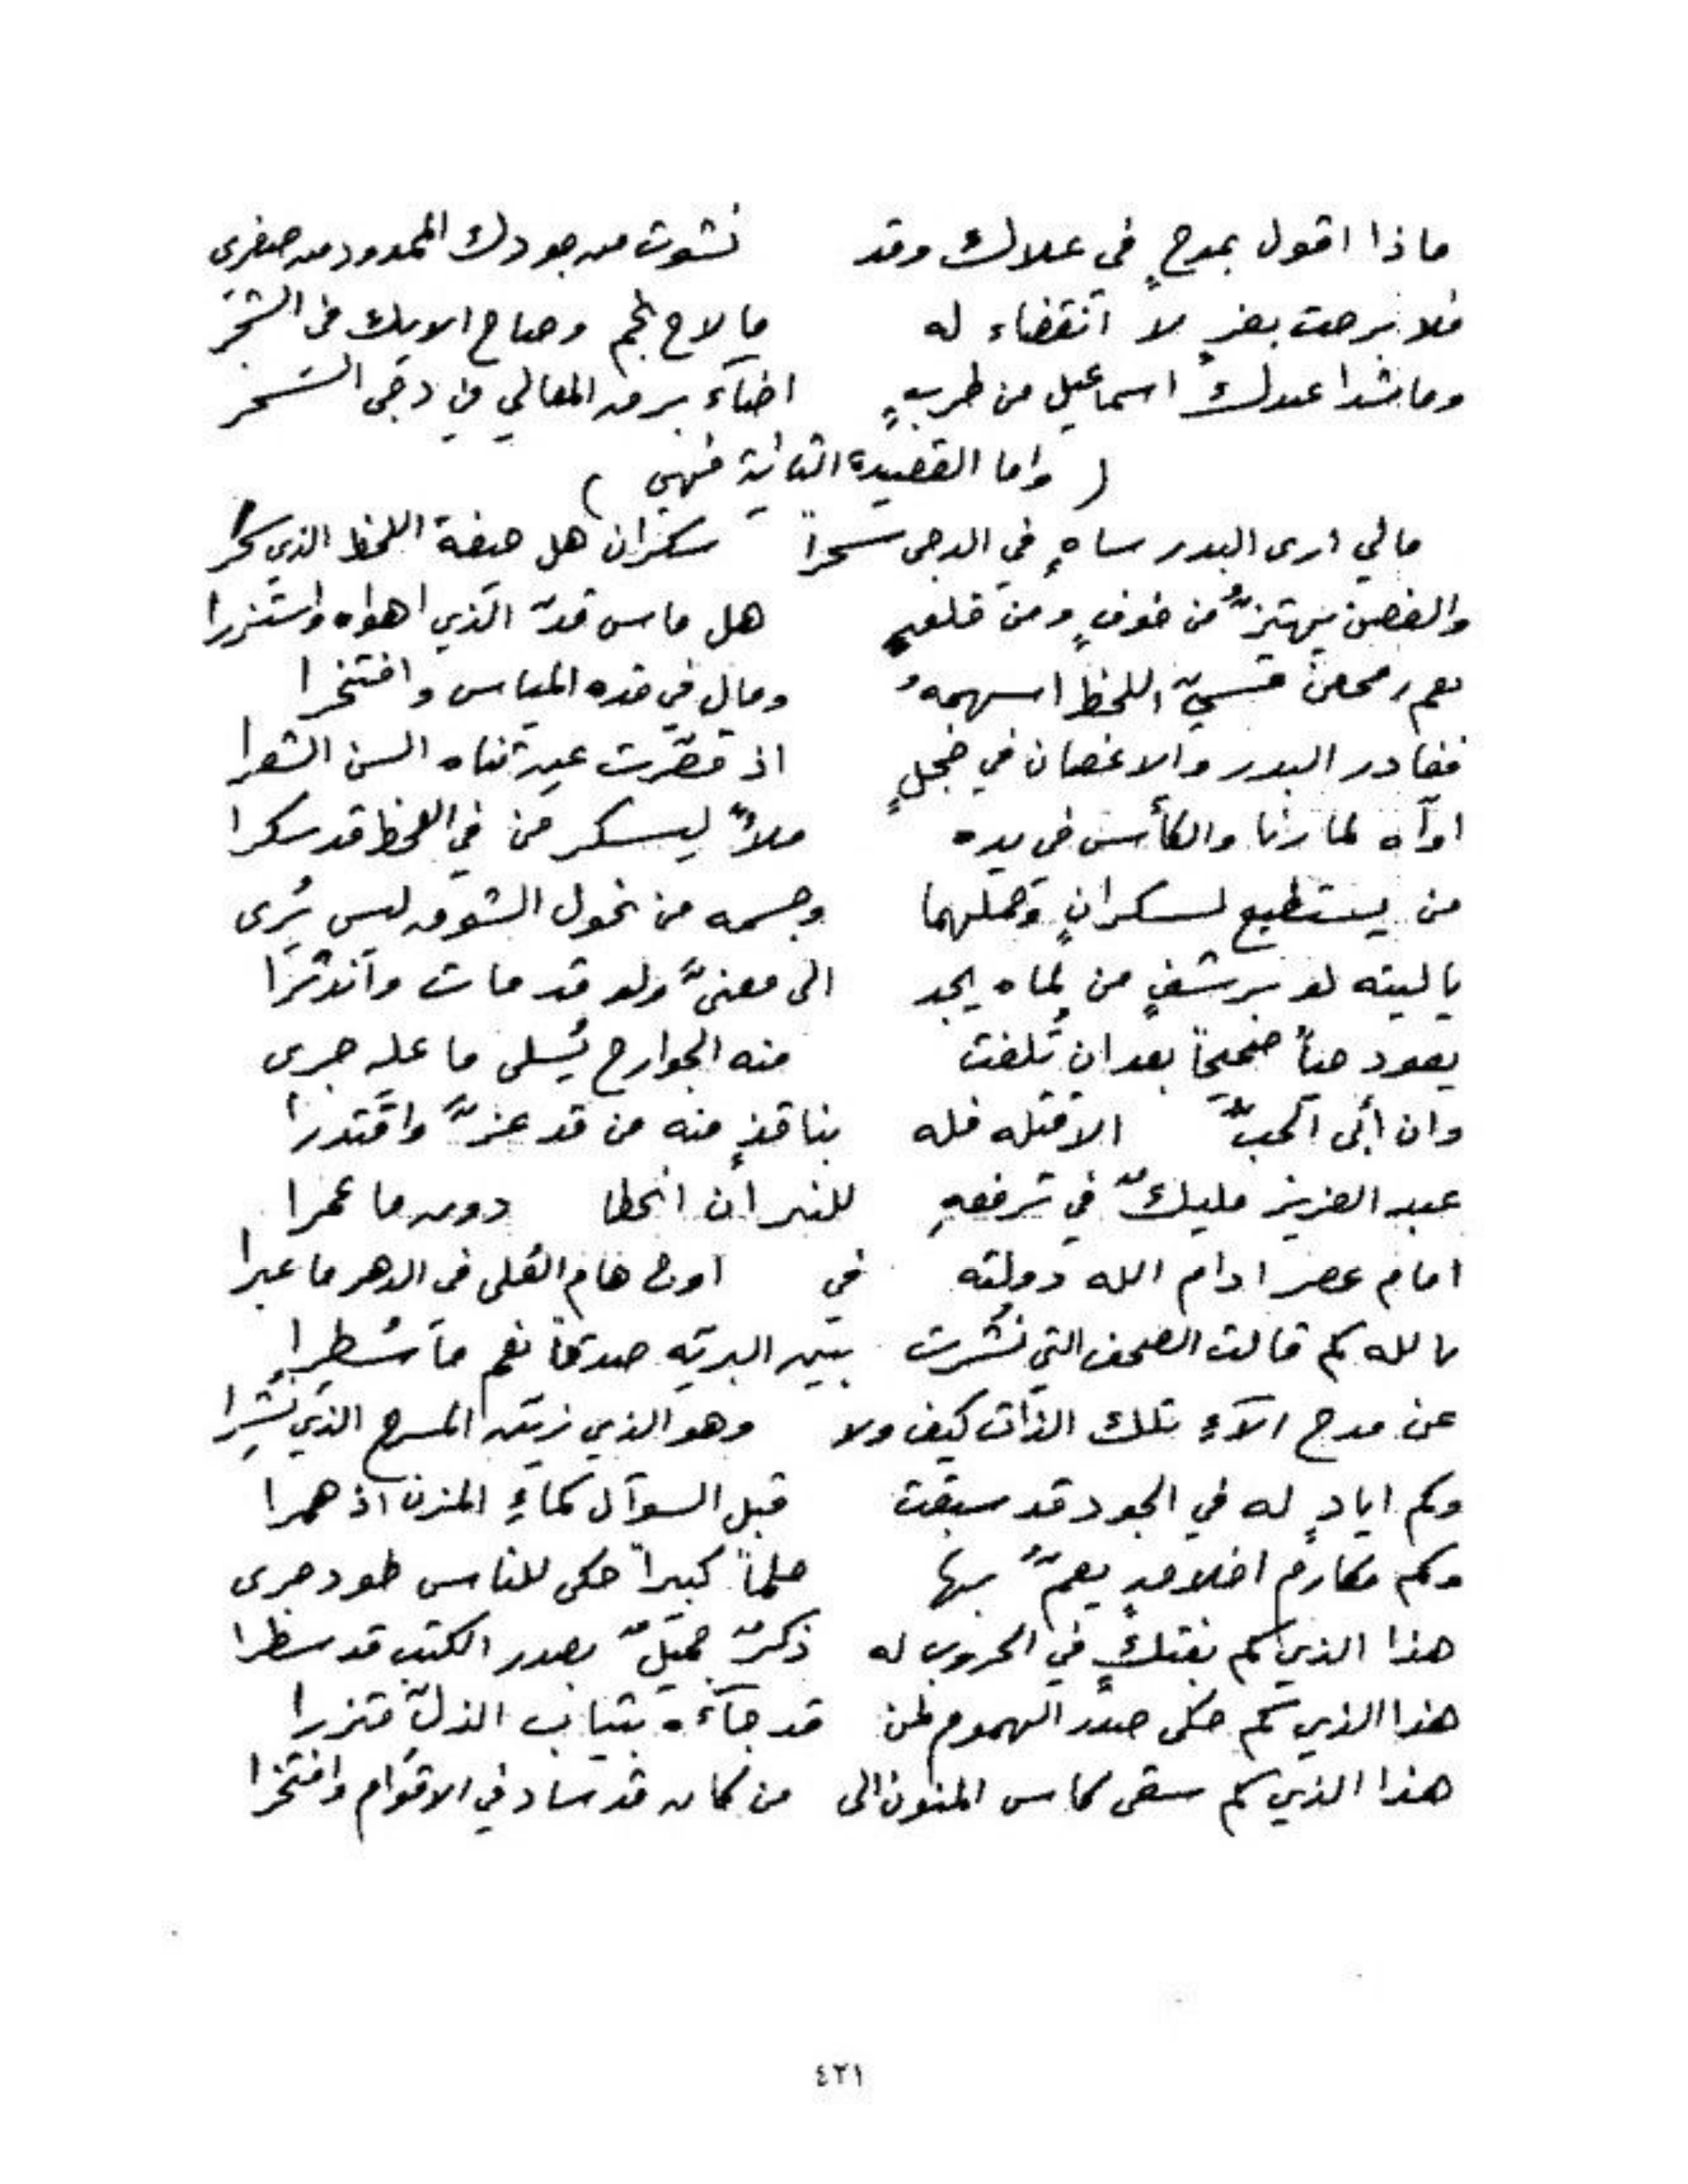 ماذا اقول بمدحٍ في علاك وقد نشوت من جودك الممدود من صغري
فلا برحت بعزٍ لا انقضاء له ما لاح نجم وصاح الايك في الشجر
وما شدا عبدك اسماعيل من طربٍ اضآء برق المعالي في دجى السحر
( واما القصيدة الثانية فهي )
مالي ارى البدر ساهٍ في الدجى سحراً سكران هل صفة اللحظ الذي سحرا
والغصن يهتزُّ من خوفٍ ومن قلعٍ هل ماس قدّ الذي اهواه واستزرا
نعم رمى عن قسيّ اللحظ اسهمهُ ومال في قده المياس وافتخرا
فغادر البدر والاغصان في خجلٍ اذ قصّرت عن ثناه السن الشعرا
اوآه لما رنا والكأس في يده ملأً ليسكر من في اللحظ قد سكرا
من يستطيع لسكرانٍ وحملهما وجسمه من نحول الشوق ليس يُرى
يا ليته لو برشفٍ من لماه يجد الى معنىًّ ولو قد مات واندثرا
يعود حياً صحيحاً بعد ان تلفت منه الجوارح يُسلى ما عليه جرى
وان أبى الحبُّ الا قتله فله بناقذٍ منه من قد عزَّ واقتدرا
عبد العزيز مليكٌ في ترفعهِ للنسران انحطا دون ما عمرا
امام عصر ادام الله دولته في اوج هام العُلى في الدهر ما عبرا
لله كم قالت الصحف التي نُشرت بين البريّه صدقاً نعم ما سُطِرا
عن مدح الآءِ تلك الذات كيف ولا وهو الذي زيّن المدح الذي نُشِرا
وكم ايادٍ له في الجود قد سبقت قبل السوآل كمآءِ المزن اذ همرا
وكم مكارم اخلاقٍ يعمُّ بها حلماً كبيراً حكى للناس طود حرى
هذا الذي كم بفتكٍ في الحروب له ذكرٌ جميلٌ بصدر الكتب قد سطرا
هذا الذي كم حكى صدر الهموم لمن قد جآءه بثياب الذلّ متزرا
هذا الذي كم سقى كاس المنون الى من كان قد ساد في الاقوام وافتخرا
٤٢١